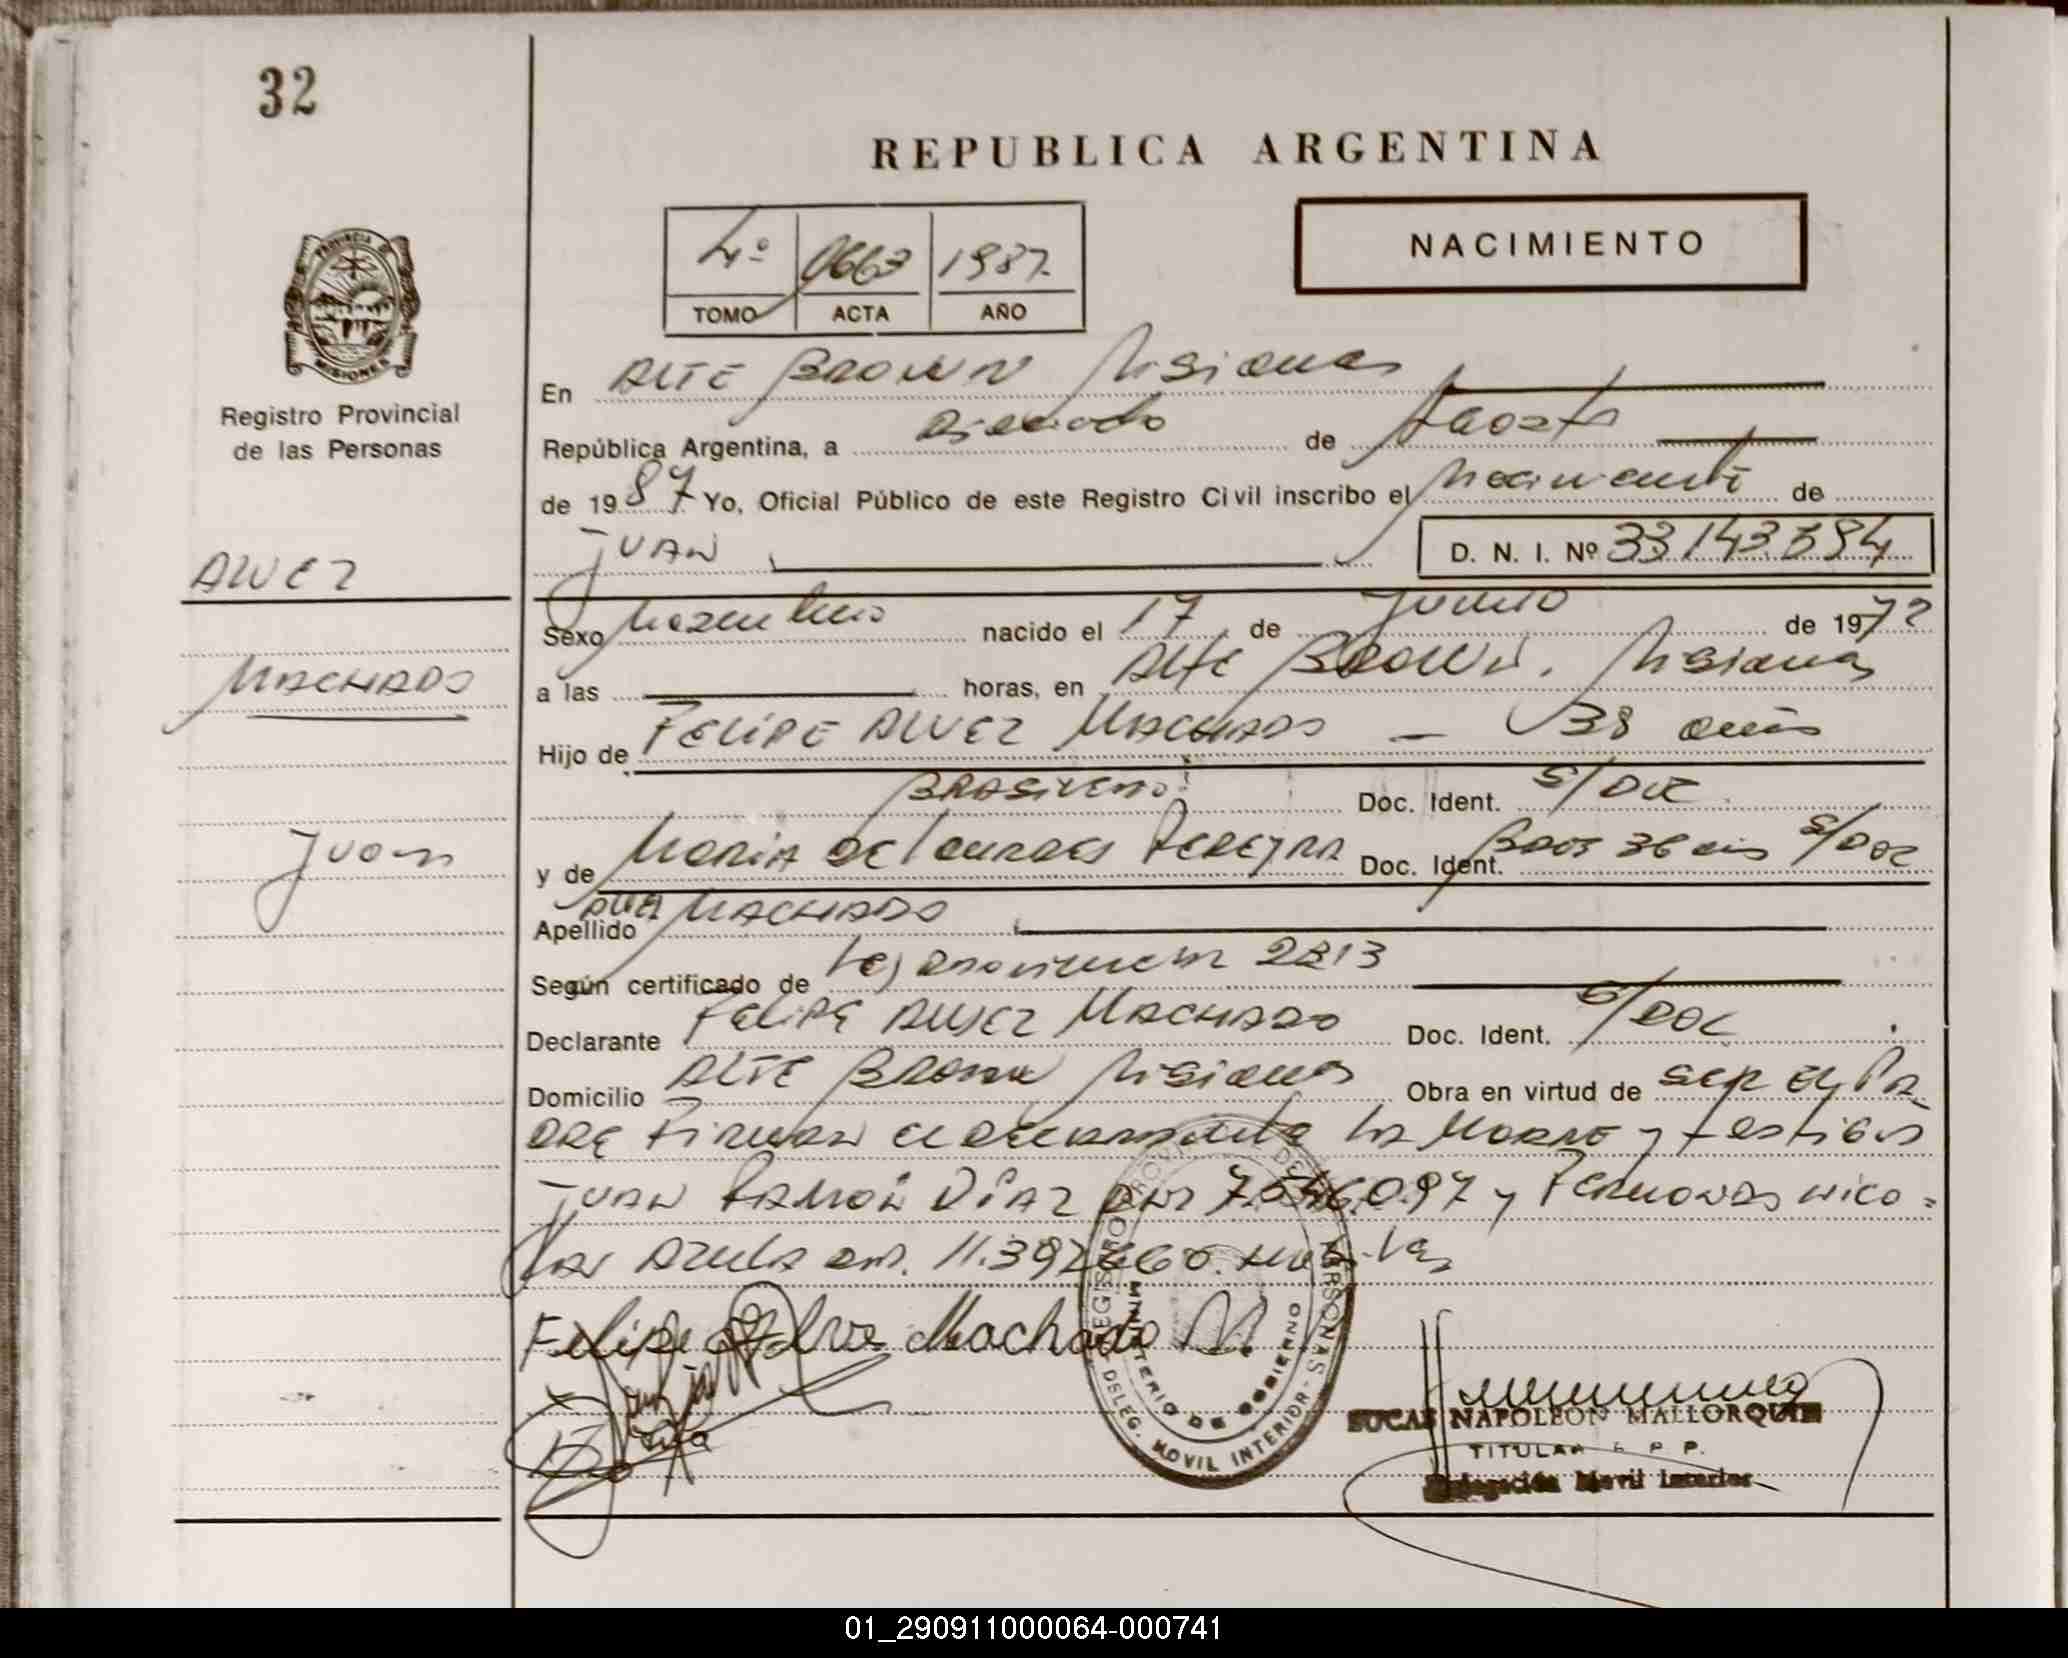 32
REPUBLICA ARGENTINA
4º 0663 1987
TOMO ACTA AÑO
NACIMIENTO
PROVINCIA DE MISIONES
Registro Provincial
de las Personas
En ALTE BROWN Misiones
República Argentina, a de Agosto
de 1987 Yo, Oficial Público de este Registro Civil inscribo el Nacimiento de
JUAN D. N. I. Nº
ALVEZ
MACHADO
Juan
Sexo Masculino nacido el 17 de de 1972
a las horas, en ALTE BROWN. Misiones
Hijo de FELIPE ALVEZ MACHADO - 38 años
BRASILEÑO Doc. Ident. S/DOC
y de Maria de Lourdes PEREYRA Doc. Ident. Bras 36 años S/Doc
Apellido ALVEZ MACHADO
Según certificado de Ley 2213
Declarante FELIPE ALVEZ MACHADO Doc. Ident. S/DOC
Domicilio ALTE BROWN Misiones Obra en virtud de SER EL PA
DRE Firman el declarante la Madre y testigos
JUAN RAMÓN DIAZ DNI 7.546.097 y Fernandes Nico=
las DNI. 11.392.660.
Felipe Alvez Machado M.
REGISTRO PROVINCIAL DE LAS PERSONAS - DELEG. MOVIL INTERIOR -
MINISTERIO DE GOBIERNO
LUCAS NAPOLEON MALLORQUIN
TITULAR R. P. P.
Delegación Movil Interior
01_290911000064-000741